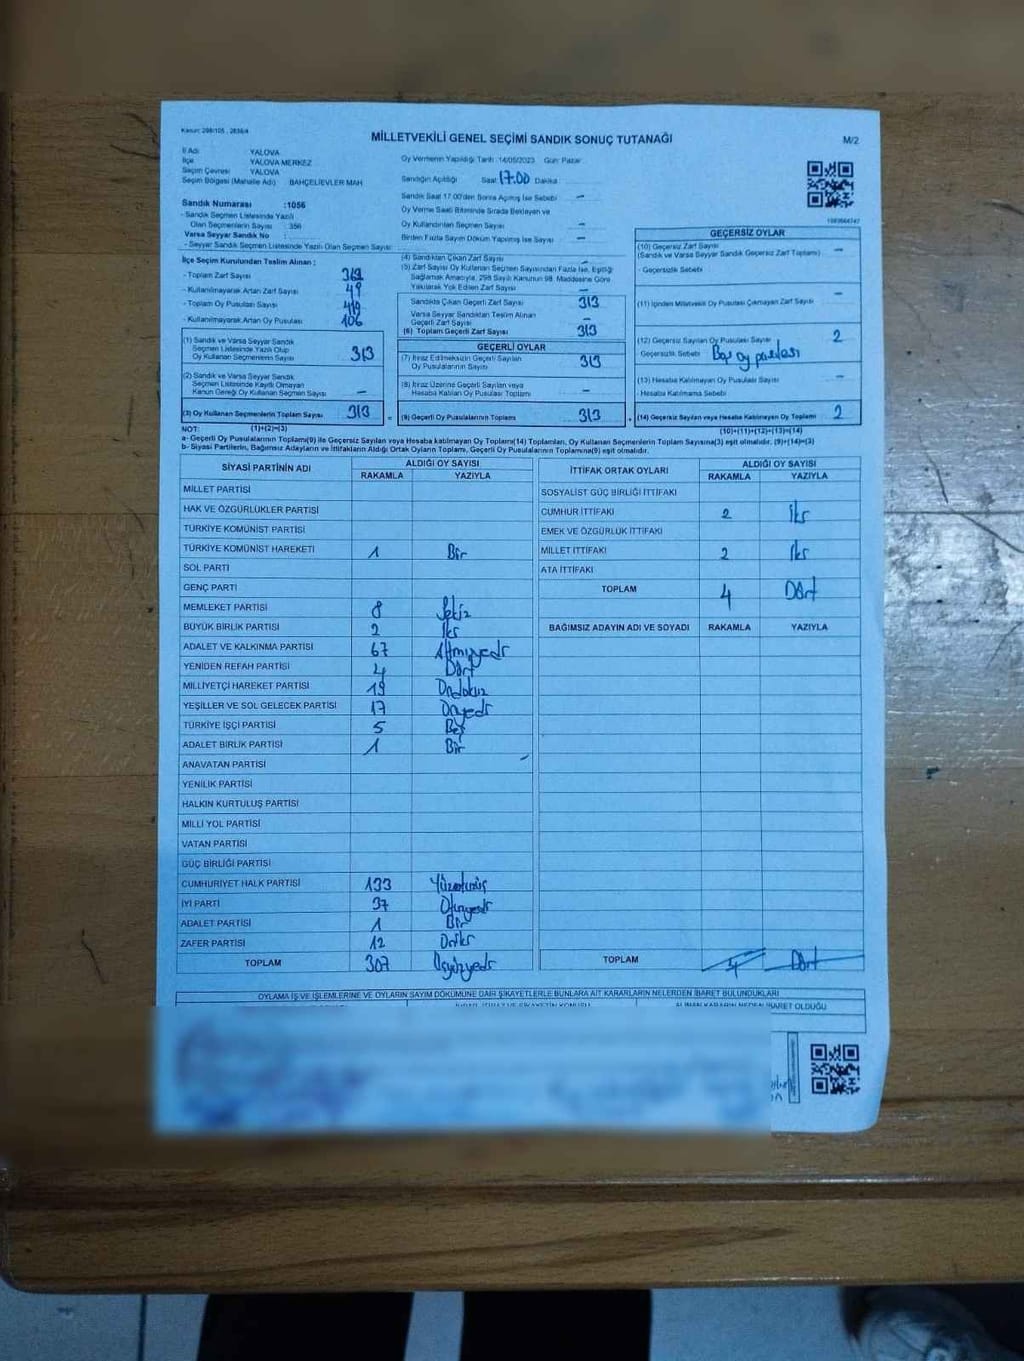 Kanun: 298/105, 2839/4
MİLLETVEKİLİ GENEL SEÇİMİ SANDIK SONUÇ TUTANAĞI
M/2
İl Adı YALOVA
İlçe YALOVA MERKEZ
Seçim Çevresi YALOVA
Seçim Bölgesi (Mahalle Adı) BAHÇELİEVLER MAH
Sandık Numarası :1056
- Sandık Seçmen Listesinde Yazılı
Olan Seçmenlerin Sayısı : 356
Varsa Seyyar Sandık No :
- Seyyar Sandık Seçmen Listesinde Yazılı Olan Seçmen Sayısı:
Oy Vermenin Yapıldığı Tarih :14/05/2023 Gün: Pazar
Sandığın Açıldığı Saat 17:00 Dakika
Sandık Saat 17.00'den Sonra Açılmış İse Sebebi –
Oy Verme Saati Bitiminde Sırada Bekleyen ve
Oy Kullandırılan Seçmen Sayısı –
Birden Fazla Sayım Döküm Yapılmış İse Sayısı –
İlçe Seçim Kurulundan Teslim Alınan :
- Toplam Zarf Sayısı
- Kullanılmayarak Artan Zarf Sayısı 49
- Toplam Oy Pusulası Sayısı 419
- Kullanılmayarak Artan Oy Pusulası 106
(1) Sandık ve Varsa Seyyar Sandık
Seçmen Listesinde Yazılı Olup
Oy Kullanan Seçmenlerin Sayısı 313
(2) Sandık ve Varsa Seyyar Sandık
Seçmen Listesinde Kayıtlı Olmayan
Kanun Gereği Oy Kullanan Seçmen Sayısı –
(3) Oy Kullanan Seçmenlerin Toplam Sayısı 313
(4) Sandıktan Çıkan Zarf Sayısı –
(5) Zarf Sayısı Oy Kullanan Seçmen Sayısından Fazla İse, Eşitliği
Sağlamak Amacıyla, 298 Sayılı Kanunun 98. Maddesine Göre
Yakılarak Yok Edilen Zarf Sayısı –
Sandıkta Çıkan Geçerli Zarf Sayısı 313
Varsa Seyyar Sandıktan Teslim Alınan
Geçerli Zarf Sayısı –
(6) Toplam Geçerli Zarf Sayısı 313
GEÇERLİ OYLAR
(7) İtiraz Edilmeksizin Geçerli Sayılan
Oy Pusulalarının Sayısı 313
(8) İtiraz Üzerine Geçerli Sayılan veya
Hesaba Katılan Oy Pusulası Toplamı –
= (9) Geçerli Oy Pusulalarının Toplamı 313
GEÇERSİZ OYLAR
(10) Geçersiz Zarf Sayısı
(Sandık ve Varsa Seyyar Sandık Geçersiz Zarf Toplamı) –
- Geçersizlik Sebebi
(11) İçinden Milletvekili Oy Pusulası Çıkmayan Zarf Sayısı –
(12) Geçersiz Sayılan Oy Pusulası Sayısı 2
Geçersizlik Sebebi Boş oy pusulası
(13) Hesaba Katılmayan Oy Pusulası Sayısı –
- Hesaba Katılmama Sebebi
+ (14) Geçersiz Sayılan veya Hesaba Katılmayan Oy Toplamı 2
NOT: (1)+(2)=(3) (10)+(11)+(12)+(13)=(14)
a- Geçerli Oy Pusulalarının Toplamı(9) ile Geçersiz Sayılan veya Hesaba katılmayan Oy Toplam(14) Toplamları, Oy Kullanan Seçmenlerin Toplam Sayısına(3) eşit olmalıdır. (9)+(14)=(3)
b- Siyasi Partilerin, Bağımsız Adayların ve İttifakların Aldığı Ortak Oyların Toplamı, Geçerli Oy Pusulalarının Toplamına(9) eşit olmalıdır.
SİYASİ PARTİNİN ADI ALDIĞI OY SAYISI
RAKAMLA YAZIYLA
MİLLET PARTİSİ
HAK VE ÖZGÜRLÜKLER PARTİSİ
TÜRKİYE KOMÜNİST PARTİSİ
TÜRKİYE KOMÜNİST HAREKETİ 1 Bir
SOL PARTİ
GENÇ PARTİ
MEMLEKET PARTİSİ 8 Sekiz
BÜYÜK BİRLİK PARTİSİ 2 İki
ADALET VE KALKINMA PARTİSİ 67 Altmışyedi
YENİDEN REFAH PARTİSİ 4 Dört
MİLLİYETÇİ HAREKET PARTİSİ 19 Ondokuz
YEŞİLLER VE SOL GELECEK PARTİSİ 17 Onyedi
TÜRKİYE İŞÇİ PARTİSİ 5 Beş
ADALET BİRLİK PARTİSİ 1 Bir
ANAVATAN PARTİSİ
YENİLİK PARTİSİ
HALKIN KURTULUŞ PARTİSİ
MİLLİ YOL PARTİSİ
VATAN PARTİSİ
GÜÇ BİRLİĞİ PARTİSİ
CUMHURİYET HALK PARTİSİ 133
İYİ PARTİ 37 Otuzyedi
ADALET PARTİSİ 1 Bir
ZAFER PARTİSİ 12 Oniki
TOPLAM 307 Üçyüzyedi
İTTİFAK ORTAK OYLARI ALDIĞI OY SAYISI
RAKAMLA YAZIYLA
SOSYALİST GÜÇ BİRLİĞİ İTTİFAKI
CUMHUR İTTİFAKI 2 İki
EMEK VE ÖZGÜRLÜK İTTİFAKI
MİLLET İTTİFAKI 2 İki
ATA İTTİFAKI
TOPLAM 4 Dört
BAĞIMSIZ ADAYIN ADI VE SOYADI RAKAMLA YAZIYLA
TOPLAM 4 Dört
OYLAMA İŞ VE İŞLEMLERİNE VE OYLARIN SAYIM DÖKÜMÜNE DAİR ŞİKAYETLERLE BUNLARA AİT KARARLARIN NELERDEN İBARET BULUNDUKLARI
ALINAN KARARIN NEDEN İBARET OLDUĞU